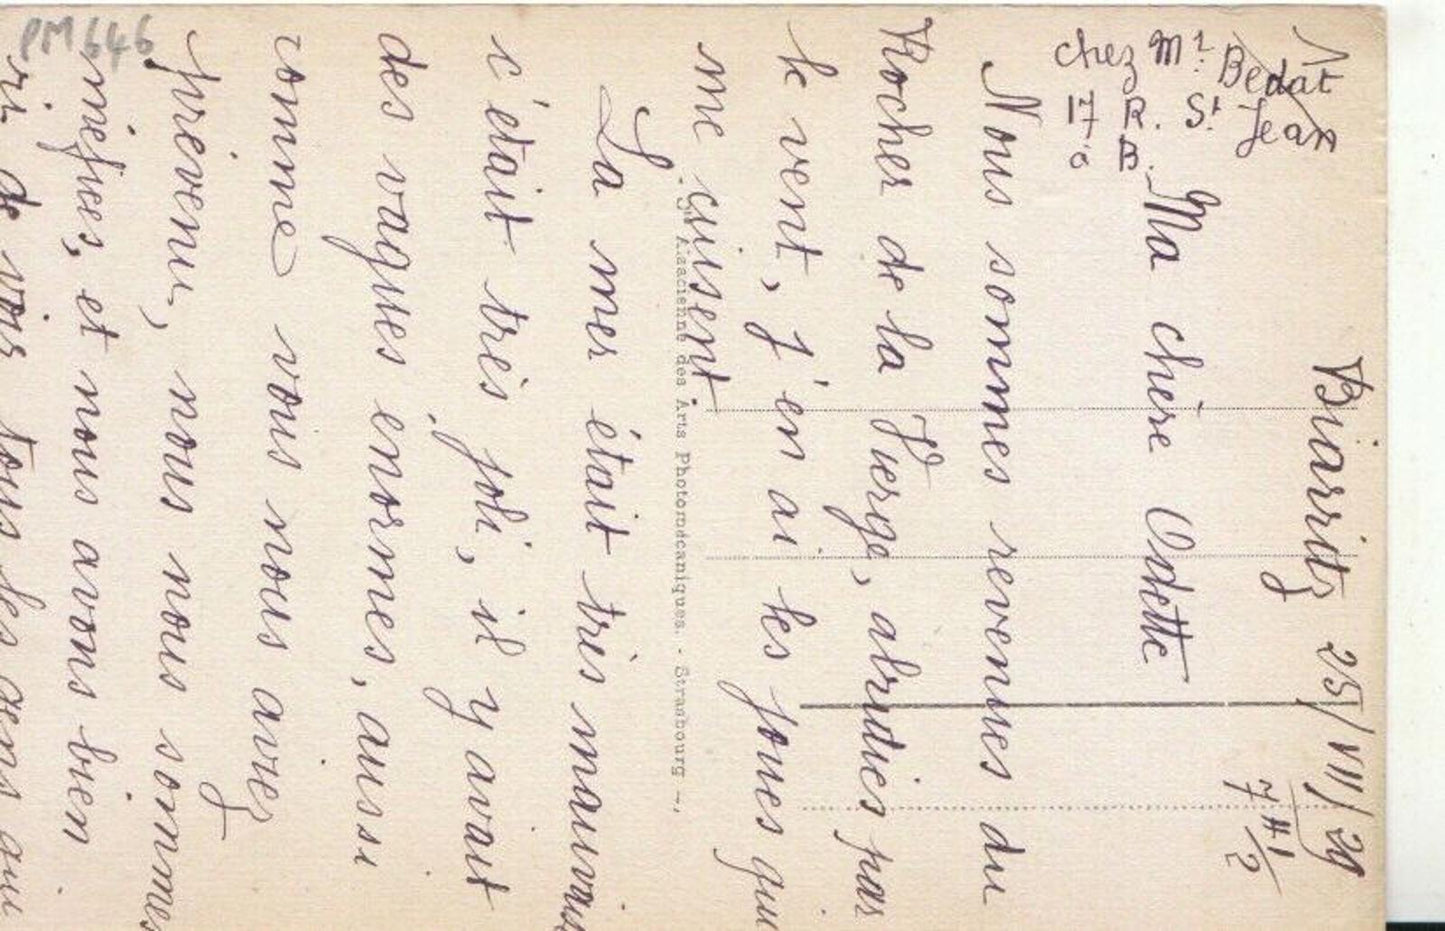 PM 646
chez Mr. Bedat
17 R. St. Jean
B.
Biarritz 25/VII/29
7 H 1/2
Ma chère Odette
Nous sommes revenues du
Rocher de la Vierge, abrudies par
le vent, j'en ai les joues qui
me cuisent.
La mer était très mauvaise
c'était très joli, il y avait
des vagues enormes, aussi
comme vous nous avez
prévenu, nous nous sommes
méfiées, et nous avons bien
ri de voir tous les gens qui
Sté Alsacienne des Arts Photomécaniques. - Strasbourg